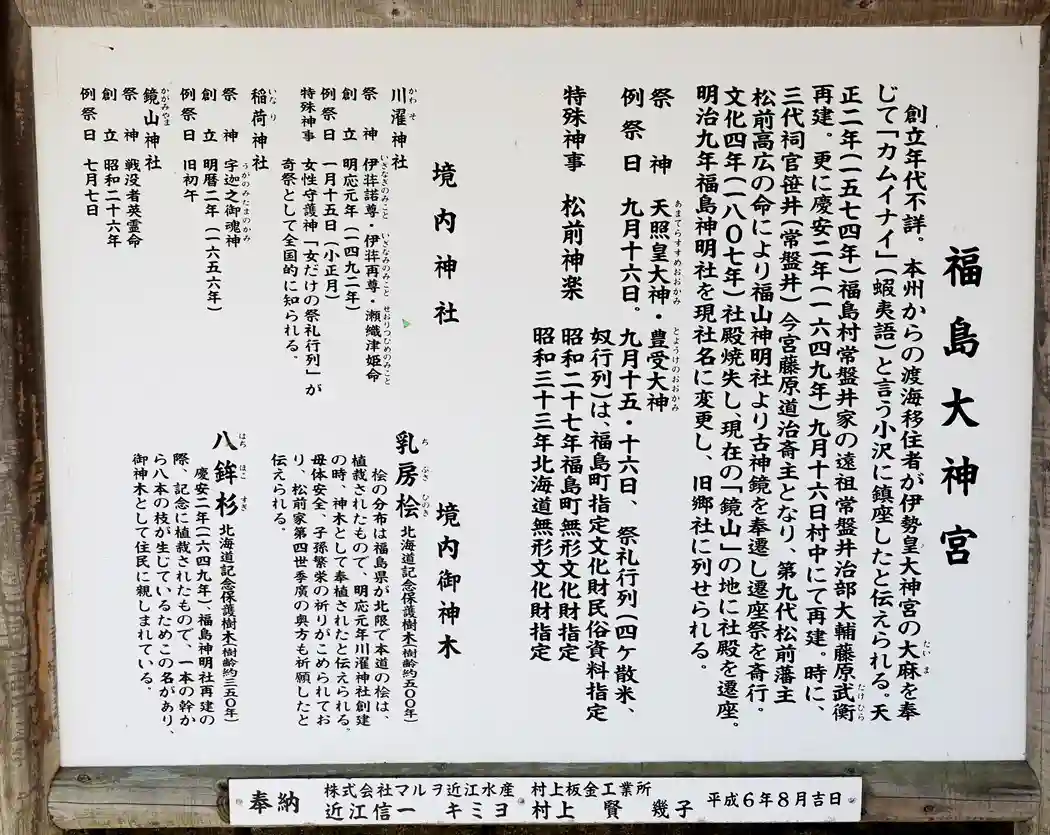 福島大神宮
創立年代不詳。本州からの渡海移住者が伊勢皇大神宮の大麻を奉
じて「カムイナイ」(蝦夷語)と言う小沢に鎮座したと伝えられる。天
正二年(一五七四年)福島村常盤井家の遠祖常盤井治部大輔藤原武衡
再建。更に慶安二年(一六四九年)九月十六日村中にて再建。時に、
三代祠官笹井(常盤井)今宮藤原道治斎主となり、第九代松前藩主
松前高広の命により福山神明社より古神鏡を奉遷し遷座祭を斎行。
文化四年(一八〇七年)社殿焼失し、現在の「鏡山」の地に社殿を遷座。
明治九年福島神明社を現社名に変更し、旧郷社に列せられる。
祭神 天照皇大神・豊受大神
例祭日 九月十六日。九月十五・十六日、祭礼行列(四ケ散米、
奴行列)は、福島町指定文化財民俗資料指定
特殊神事 松前神楽 昭和二十七年福島町無形文化財指定
昭和三十三年北海道無形文化財指定
境内神社
川濯神社
祭神 伊弉諾尊・伊弉再尊・瀬織津姫命
創立 明応元年(一四九二年)
例祭日 一月十五日(小正月)
特殊神事 女性守護神「女だけの祭礼行列」が
奇祭として全国的に知られる。
稲荷神社
祭神 宇迦之御魂神
創立 明暦二年(一六五六年)
例祭日 旧初午
鏡山神社
祭神 戦没者英霊命
創立 昭和二十六年
例祭日 七月七日
境内御神木
乳房桧 北海道記念保護樹木(樹齢約五〇〇年)
桧の分布は福島県が北限で本道の桧は、
植裁されたもので、明応元年川濯神社創建
の時、神木として奉植されたと伝えられる。
母体安全、子孫繁栄の祈りがこめられてお
り、松前家第四世季廣の奥方も祈願したと
伝えられる。
八鉾杉 北海道記念保護樹木(樹齢約三五〇年)
慶安二年(一六四九年)、福島神明社再建の
際、記念に植裁されたもので、一本の幹か
ら八本の枝が生じているためこの名があり、
御神木として住民に親しまれている。
奉納
株式会社マルヲ近江水産 村上板金工業所
近江信一 キミヨ 村上賢 幾子
平成6年8月吉日